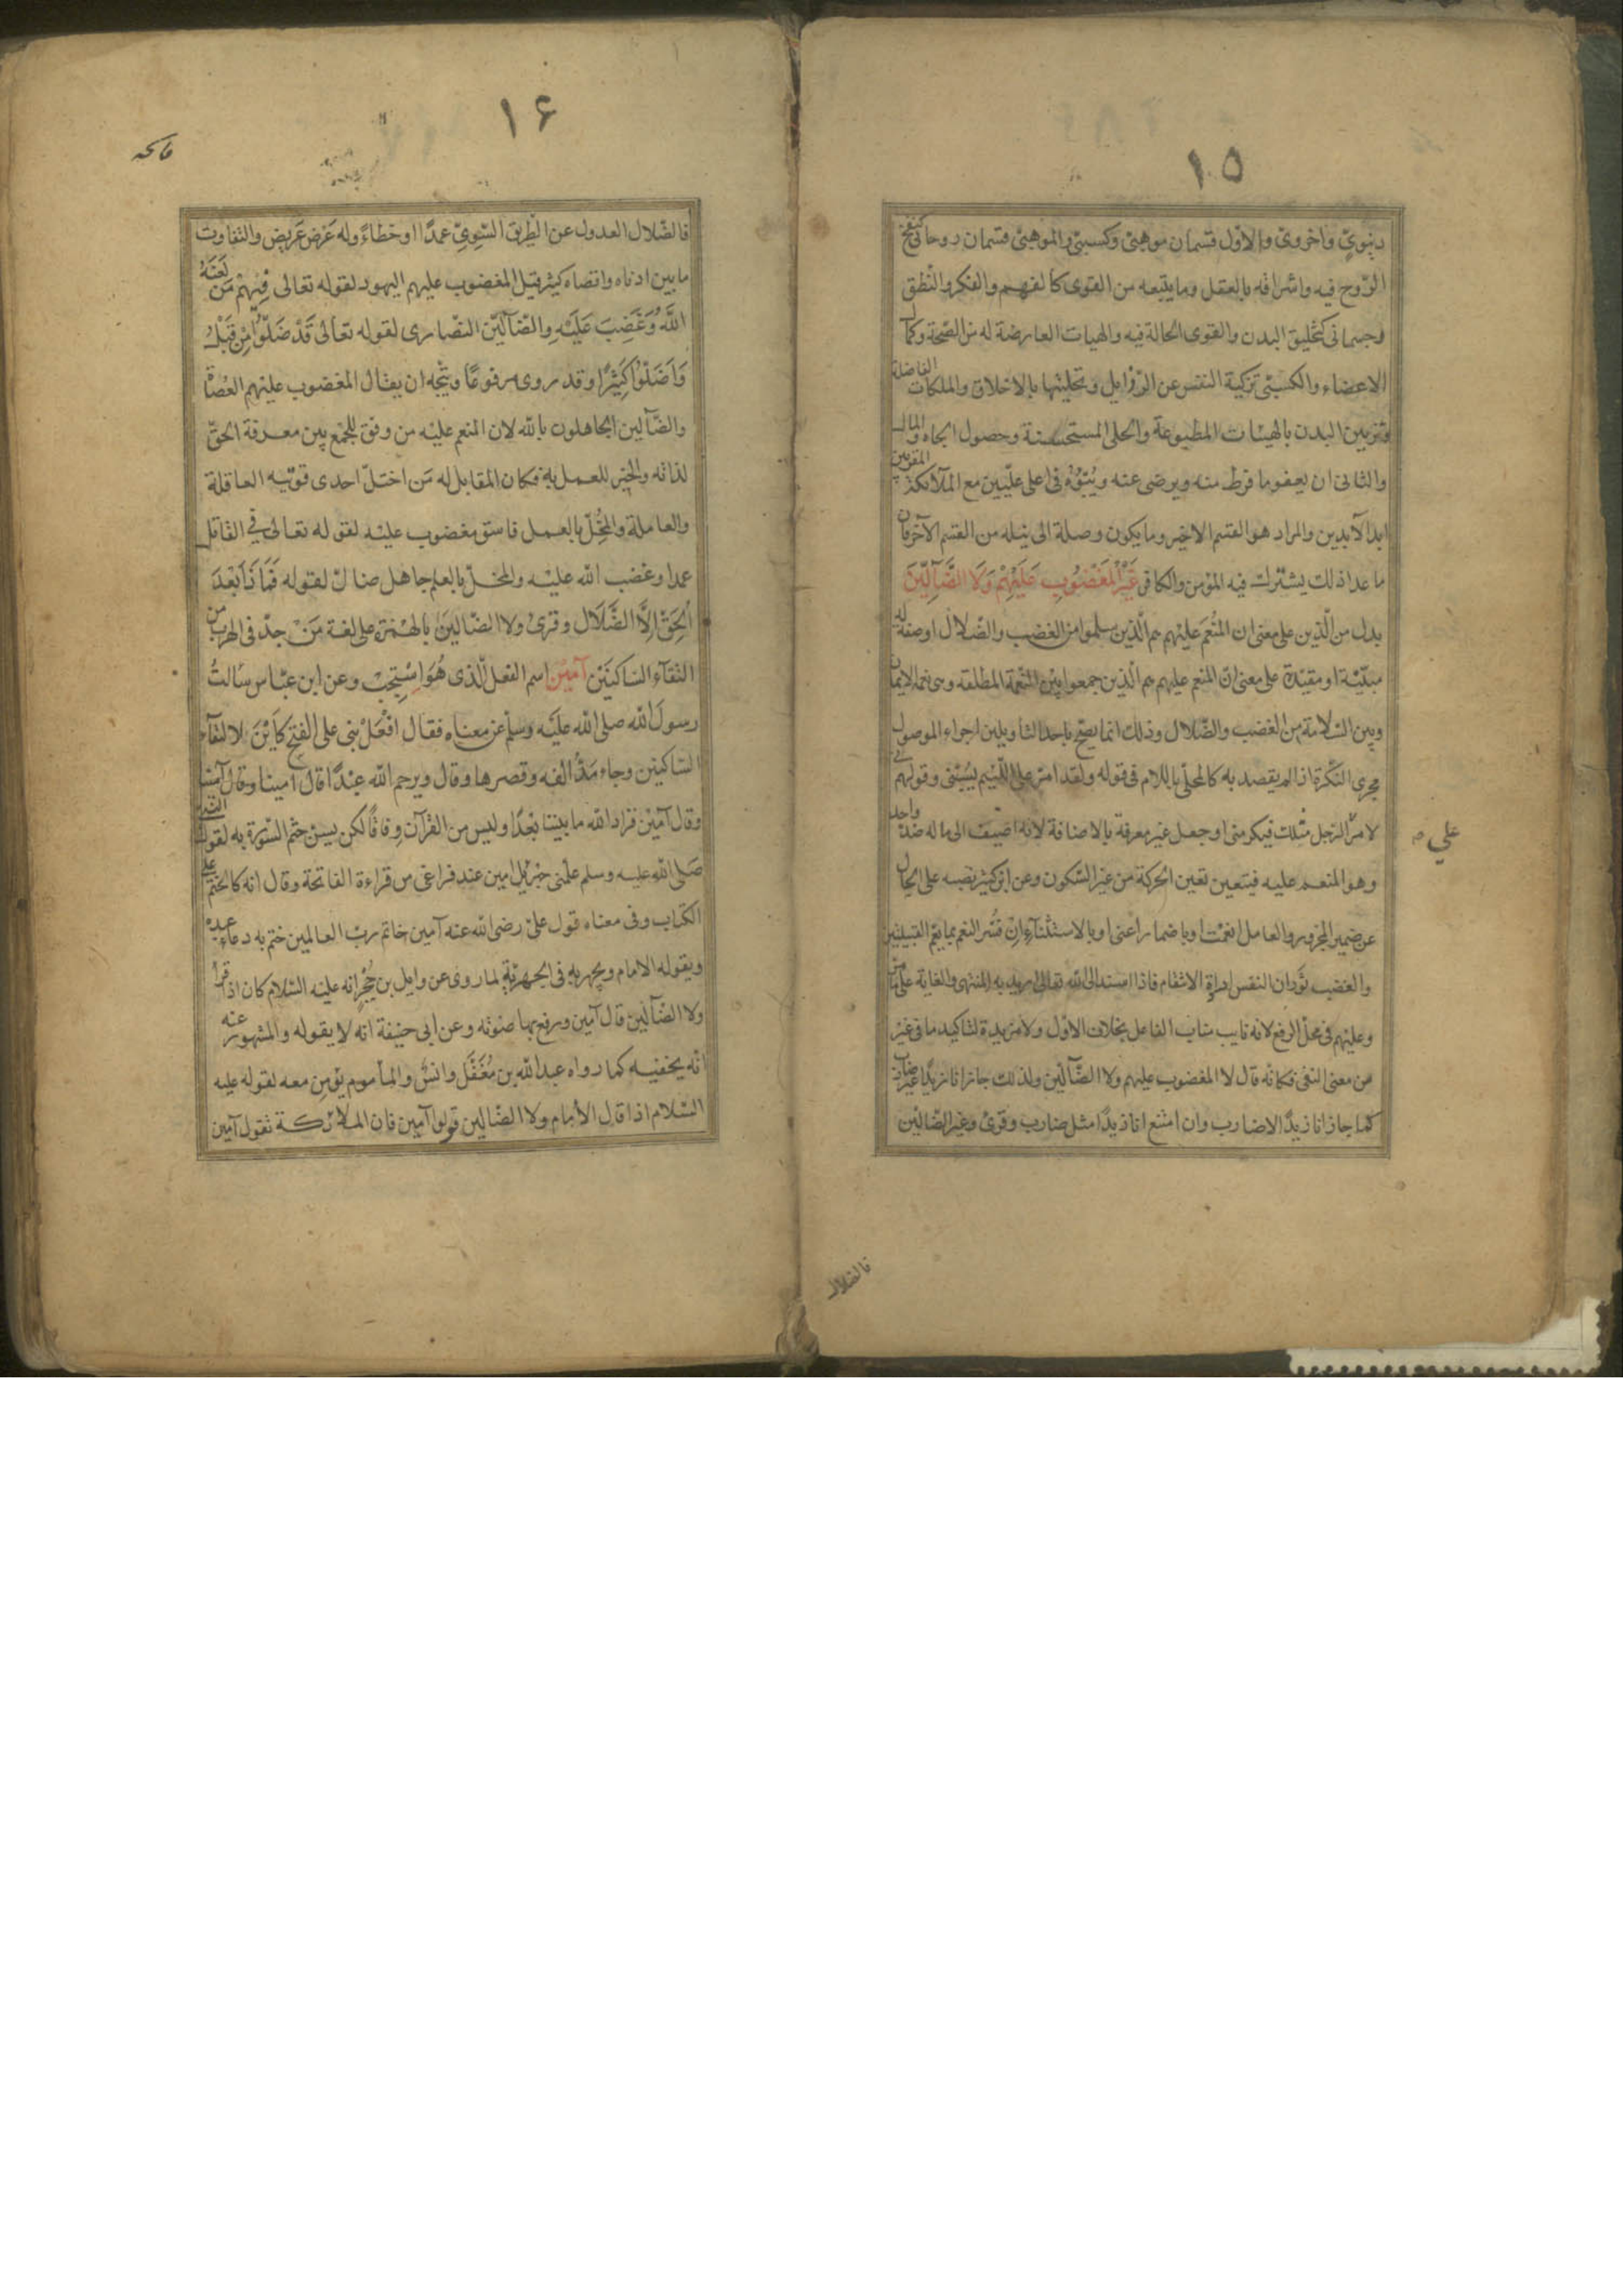 ١٥
دنيويّ واخرويّ والاوّل قسمان موهبيّ وكسبيّ والموهبيّ قسمان روحانيّ كنفخ
الرّوح فيه واشراقه بالعقل وما يتبعه من القوى كالفهم والفكر والنّطق
وجسمانيّ كتخليق البدن والقوى الحالّة فيه والهيات العارضة له من الصّحة وكمال
الاعضاء والكسبيّ تزكية النفس عن الرّذايل وتحليتها بالاخلاق والملكات الفاضلة
وتزيين البدن بالهيئات المطبوعة والحلى المستحسنة وحصول الجاه والمال
والثانى ان يعفو ما فرط منه ويرضى عنه ويبوّئه فى اعلى علّيين مع الملآئكة المقربين
ابد الآبدين والمراد هو القسم الاخير وما يكون وصلة الى نيله من القسم الآخر فان
ما عدا ذلك يشترك فيه المؤمن والكافر غَيْرِ الْمَغْضُوبِ عَلَيْهِمْ وَلَا الضَّآلِّينَ
بدل من الّذين على معنى ان المنعم عليهم هم الّذين سلموا من الغضب والضّلال او صفة له
مبيّنة او مقيّدة على معنى انّ المنعم عليهم هم الّذين جمعوا بين النّعمة المطلقة وهى نعمة الايمان
وبين السّلامة من الغضب والضّلال وذلك انما يصحّ باحد التأويلين اجراء الموصول
مجرى النّكرة اذ لم يقصد به كالمحلّى باللام فى قوله ولقد امرّ على اللّئيم يسبّنى وقولهم انى
لامرّ على الرّجل مثلك فيكرمنى او جعل غير معرفة بالاضافة لانه اضيف الى ما له ضدّ واحد
وهو المنعم عليه فيتعين تعين الحركة من غير السّكون وعن ابن كثير نصبه على الحال
عن ضمير المجرور والعامل انعمت او باضمار اعنى او بالاستثنآء ان فسّر النعم بما يعمّ القبيلين
والغضب ثوران النفس ارادة الانتقام فاذا اسند الى الله تعالى اريد به المنتهى والغاية على ما مرّ
وعليهم فى محلّ الرفع لانه نايب مناب الفاعل بخلاف الاوّل ولا مزيدة لتاكيد ما فى غير
من معنى النفى فكانّه قال لا المغضوب عليهم ولا الضّآلّين ولذلك جاز انا زيدًا غير ضارب
كما جاز انا زيدًا لا ضارب وان امتنع انا زيدًا مثل ضارب وقرئ وغير الضّالّين
فالضلال
١۶
فاتحه
فالضّلال العدول عن الطّريق السّوىّ عمدًا او خطاءً وله عَرض عريض والتفاوت
ما بين ادناه واقصاه كثير قيل المغضوب عليهم اليهود لقوله تعالى فِيهِمْ مَن لَعَنَهُ
اللَّهُ وَغَضِبَ عَلَيْهِ والضّآلّين النصارى لقوله تعالى قَدْ ضَلُّوا مِنْ قَبْلُ
وَاَضَلُّوا كَثِيرًا وقد روى مرفوعًا ويتّجه ان يقال المغضوب عليهم العُصاة
والضّآلين الجاهلون بالله لان المنعم عليه من وفق للجمع بين معرفة الحقّ
لذاته والخير للعمل به فكان المقابل له مَن اختلّ احدى قوّتيه العاقلة
والعاملة والمُخِلّ بالعمل فاسق مغضوب عليه لقوله تعالى فى القاتل
عمدا وغضب الله عليه والمخلّ بالعلم جاهل ضالّ لقوله فَمَا ذَا بَعْدَ
الْحَقِّ اِلَّا الضَّلَال وقرئ ولا الضّالين بالهمزة على لغة مَنْ جدّ فى الهرب من
التقآء السّاكنين آمِين اسم الفعل الّذى هُوَ اسْتجب وعن ابن عبّاس سَالتُ
رسولَ الله صلى الله عليه وسلم عن معناه فقال افْعَلْ بنى على الفتح كَاَيْنَ لالتقآء
السّاكنين وجاء مَدّ الفه وقصرها وقال ويرحم الله عبدًا قال امينا وقال آمين
وقال آمِيْن فزاد الله ما بيننا بُعْدًا وليس من القرآن وِفاقًا لكن يسنّ ختم السّورة به لقول النبى
صَلى الله عليه وسلم علّمنى جبرئيل امين عند فراغى من قراءة الفاتحة وقال انه كالختم على
الكتاب وفى معناه قول علىّ رضى الله عنه آمين خاتم ربّ العالمين ختم به دعاء عبده
ويقوله الامام ويجهر به فى الجهريّة لما روى عن وايل بن حُجْر انه عليه السّلام كان اذا قرأ
ولا الضّآلّين قال آمين ورفع بها صوته وعن ابى حنيفة انه لا يقوله والمشهور عنه
انّه يخفيه كما رواه عبد الله بن مُغَفّل وانسٌ والمأموم يؤمن معه لقوله عليه
السّلام اذا قال الأمام ولا الضّالين قولوا آمين فان الملآئكة تقول آمين